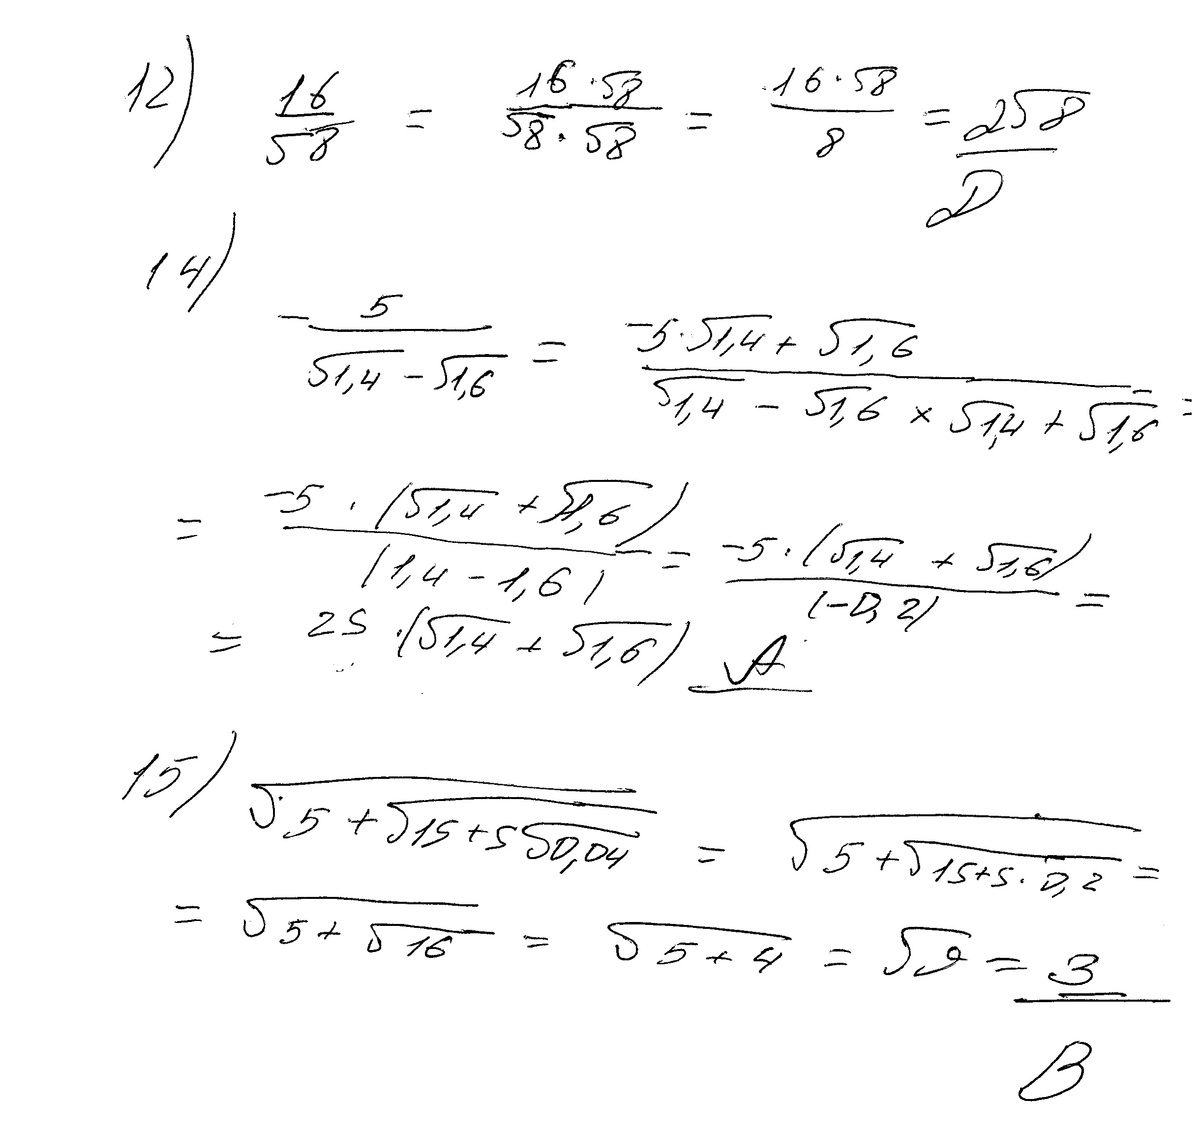 12) 16/√8 = 16·√8/√8·√8 = 16·√8/8 = 2√8
D
14)
-5/√1,4 - √1,6 = -5·√1,4 + √1,6/√1,4 - √1,6 × √1,4 + √1,6 =
= -5·(√1,4 + √1,6)/(1,4 - 1,6) = -5·(√1,4 + √1,6)/(-0,2) =
= 25·(√1,4 + √1,6) A
15) √5+√15+5√0,04 = √5+√15+5·0,2 =
= √5+√16 = √5+4 = √9 = 3
B